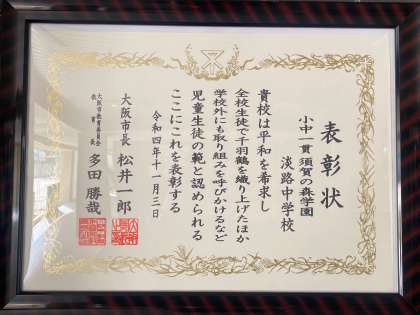 表彰状
小中一貫 須賀の森学園
淡路中学校
貴校は平和を希求し
全校生徒で千羽鶴を織り上げたほか
学校外にも取り組みを呼びかけるなど
児童生徒の範と認められる
ここにこれを表彰する
令和四年十一月三日
大阪市長 松井一郎
大阪市教育委員会
教育長 多田勝哉